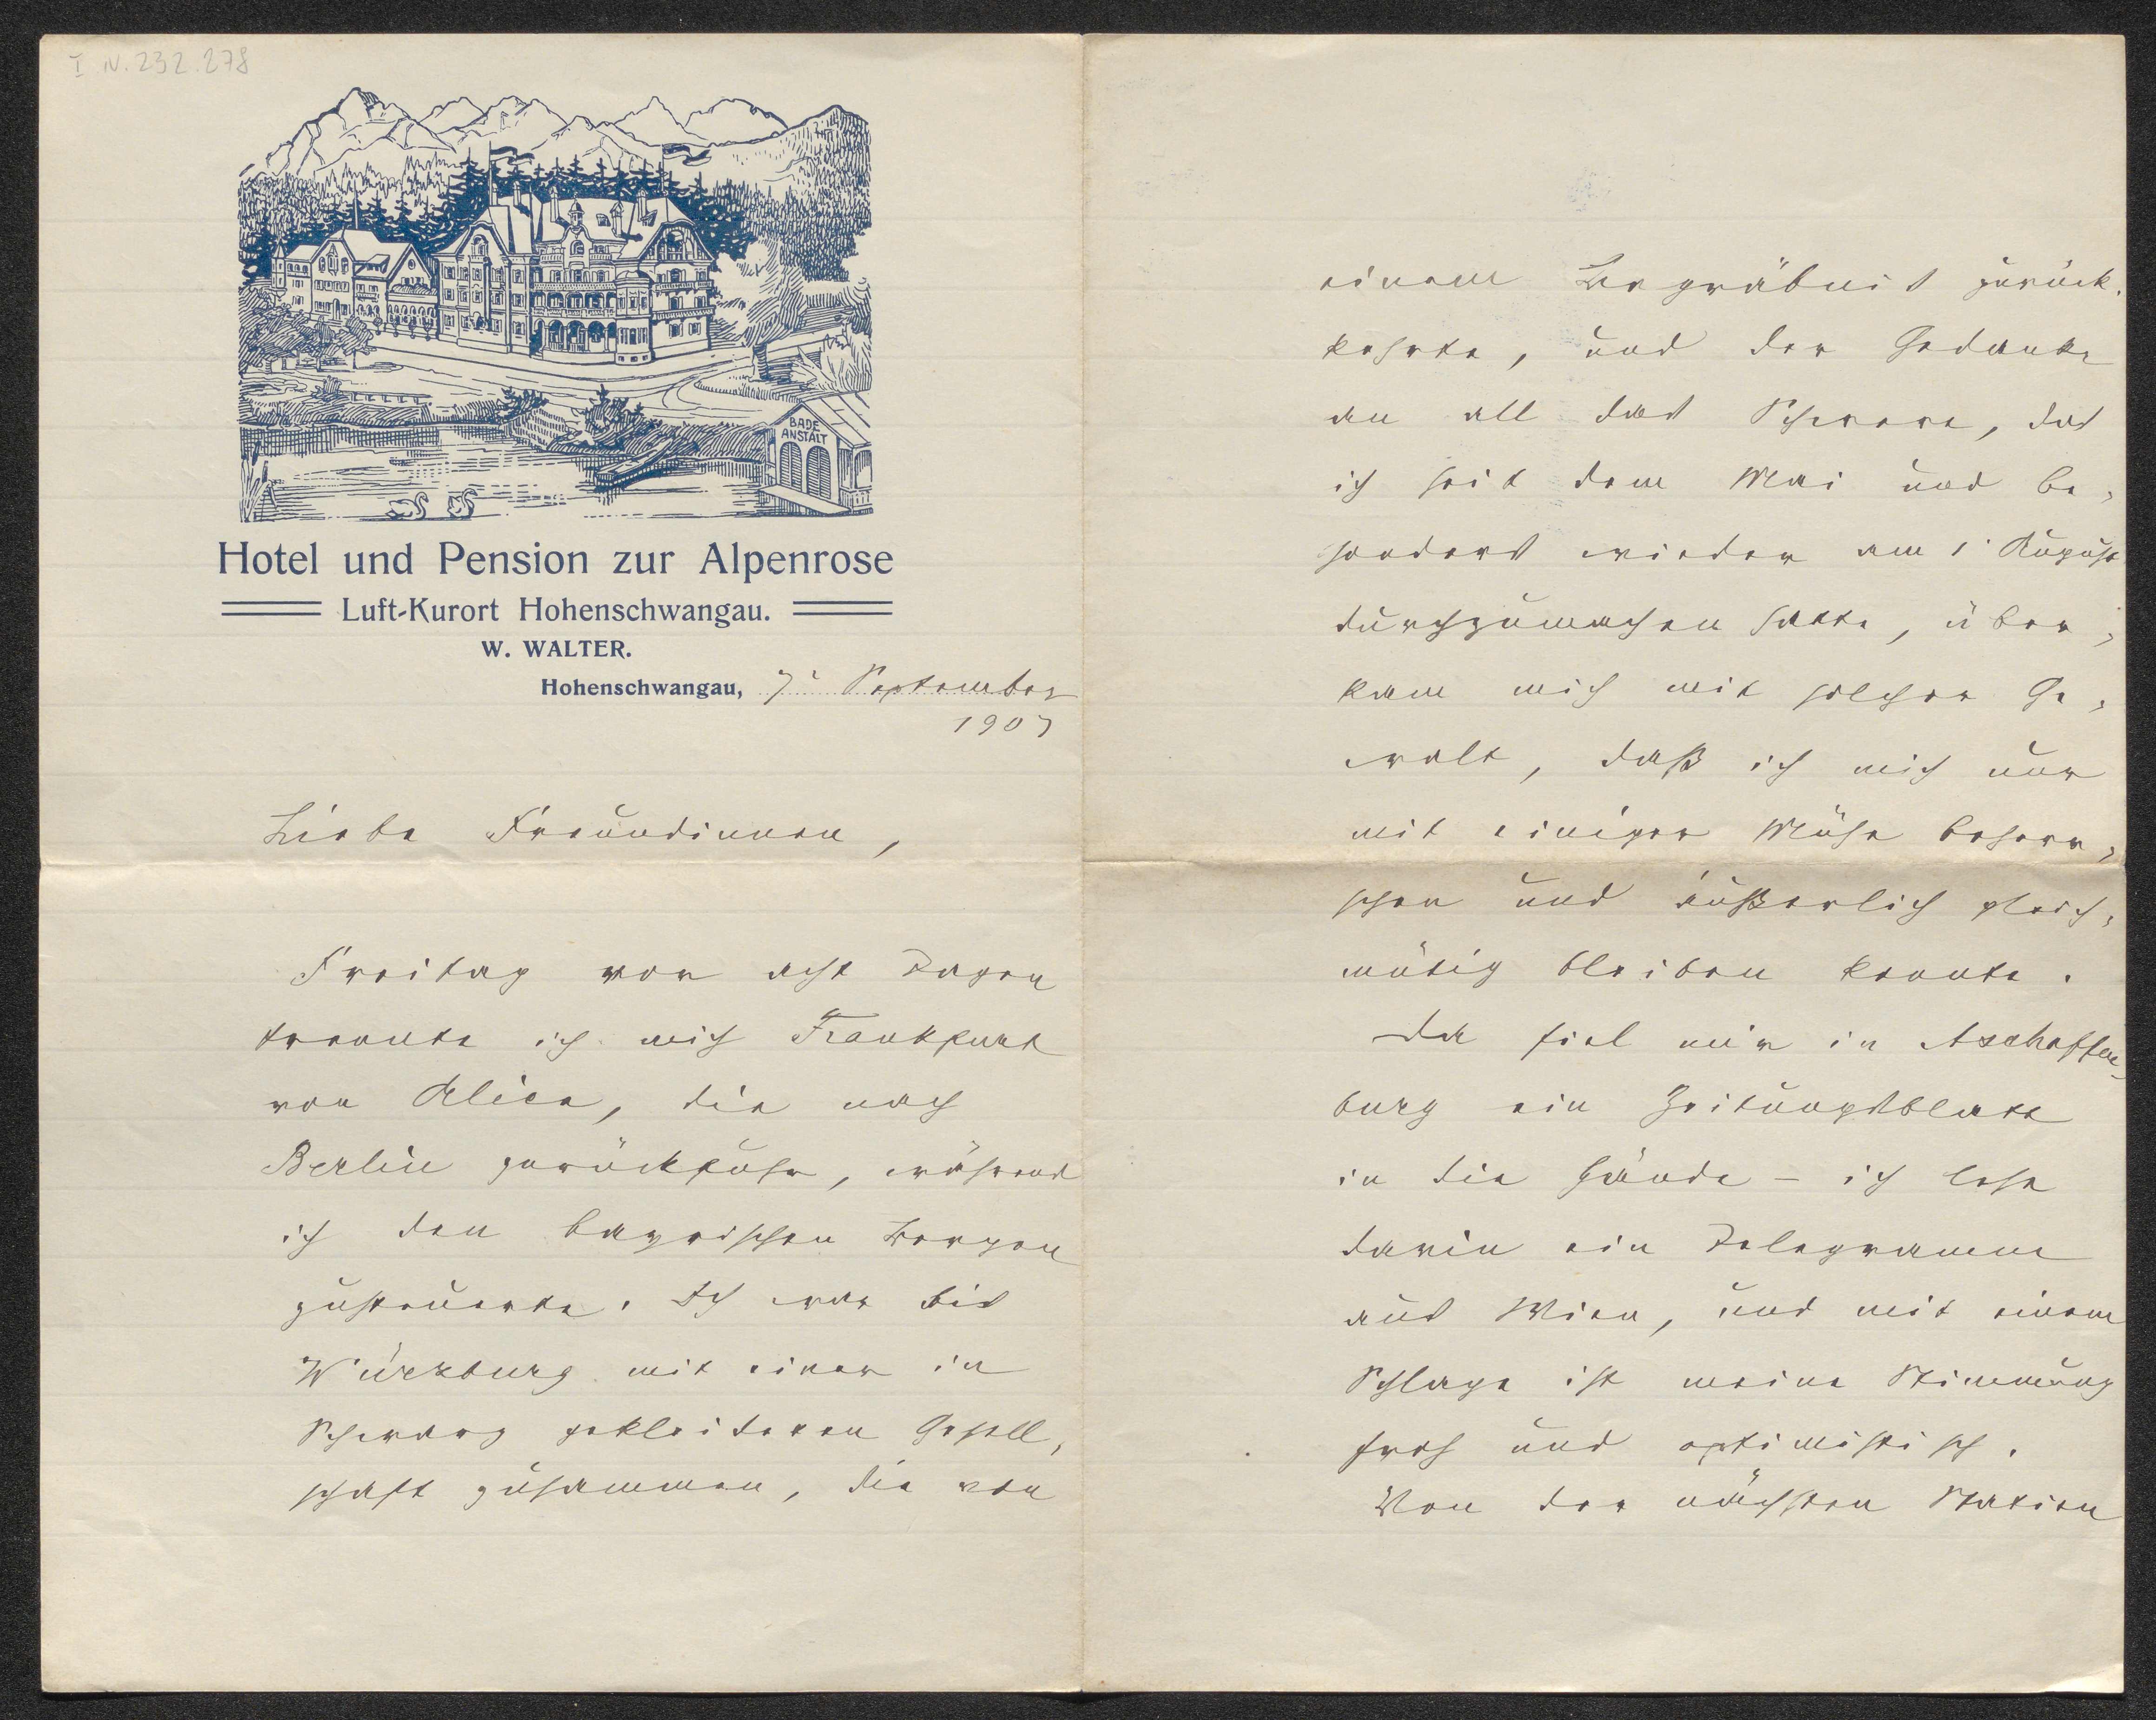 I N. 232.278
BADE
ANSTALT
Hotel und Pension zur Alpenrose
Luft-Kurort Hohenschwangau.
W. WALTER.
Hohenschwangau, 7. September
1907
Liebe Freundinnen,
Freitag vor acht Tagen
trennte ich mich Frankfurt
von Alice, die nach
Berlin zurückfuhr, während
ich den bayrischen Bergen
zusteuerte. Ich war bis
Würzburg mit einer in
Schwarz gekleideten Gesell-
schaft zusammen, die von
einem Begräbnis zurück-
kehrte, und der Gedanke
an all das Schwere, das
ich seit dem Mai und be-
sonders wieder am 1. August
durchzumachen hatte, über-
kam mich mit solcher Ge-
walt, daß ich mich nur
mit einiger Mühe beherr-
schen und äußerlich gleich-
mütig bleiben konnte.
Da fiel mir in Aschaffen-
burg ein Zeitungsblatt
in die Hände – ich lese
darin ein Telegramm
aus Wien, und mit einem
Schlage ist meine Stimmung
froh und optimistisch.
Von der nächsten Station